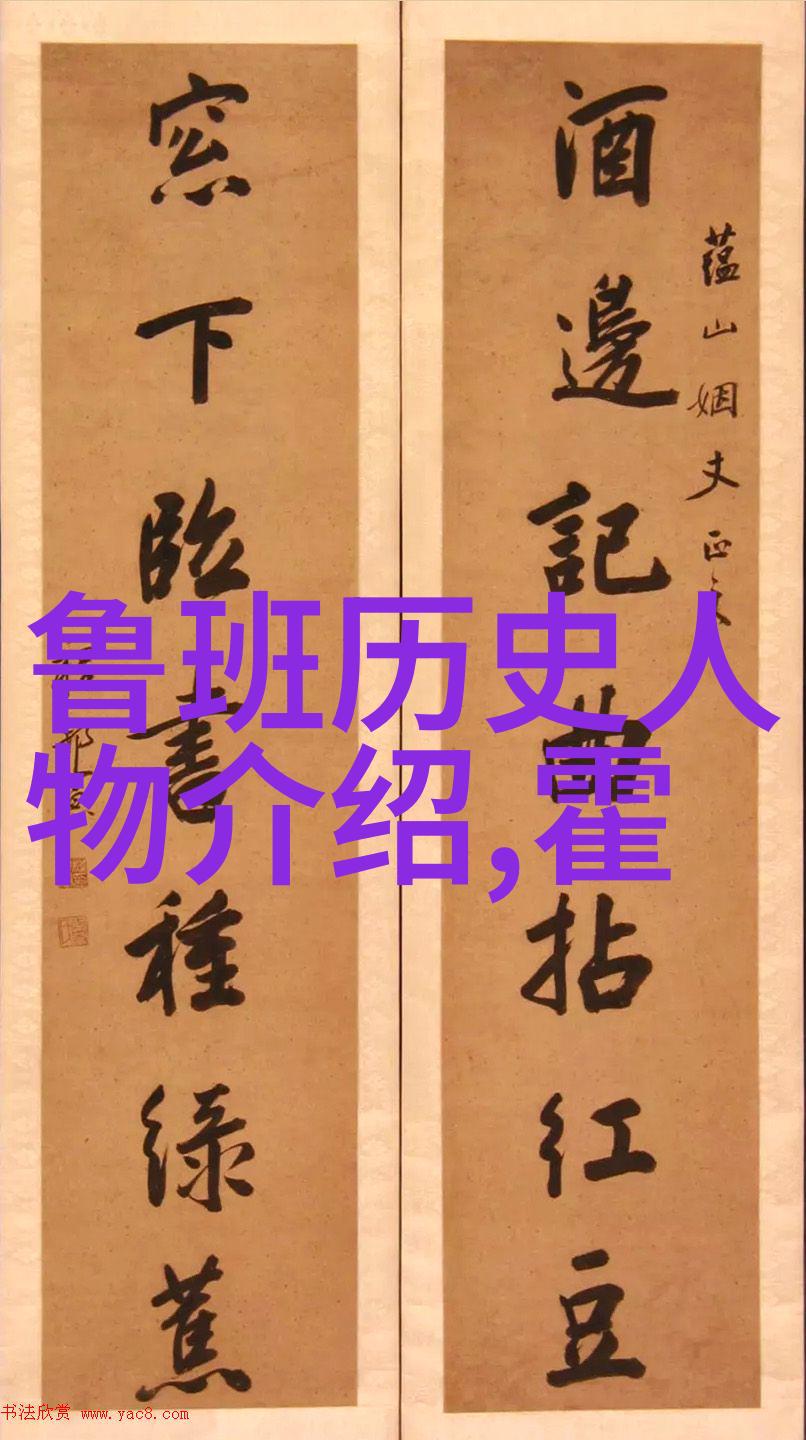 酒邊記曲拈紅豆
蕴山姻丈正之
窓下臨書種綠蕉
鲁班历史人
物介绍,霍
书法欣赏 www.yac8.com